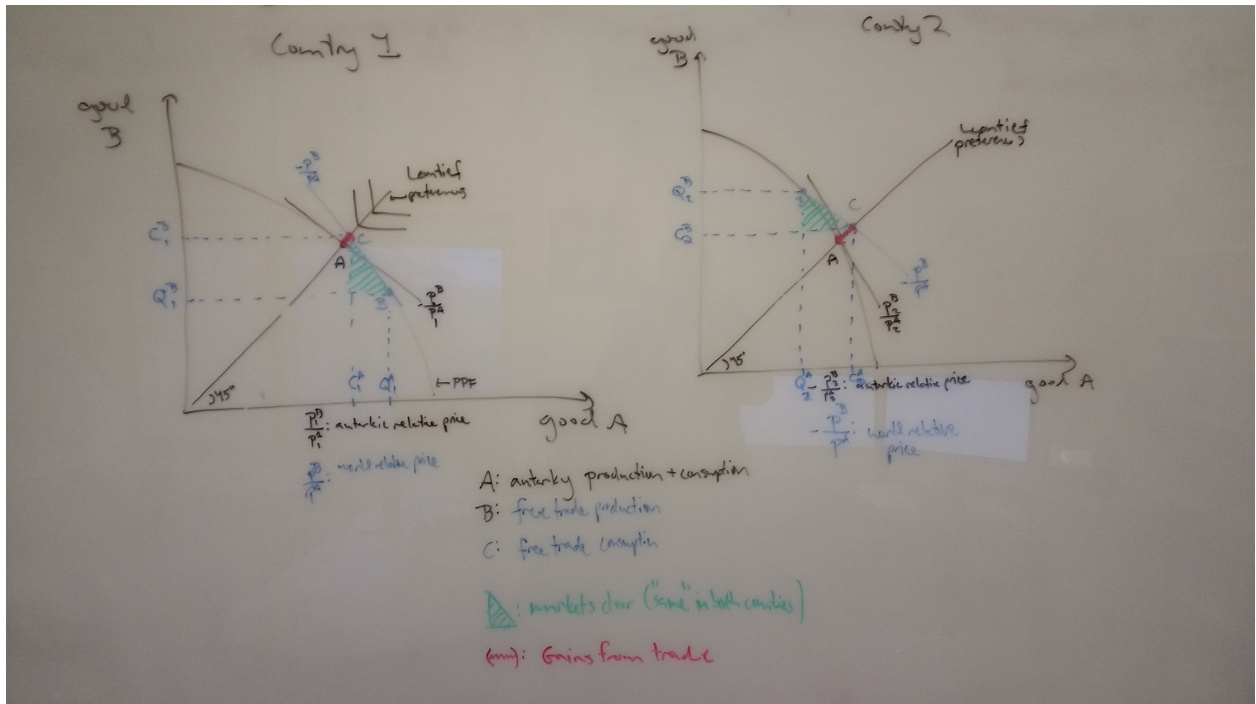 Country 1
good
B
-P^B/P^A
Leontief
preferences
C_1^B
C
A
Q_1^B
B
-P_1^B/P_1^A
45°
C_1^A
Q_1^A
←PPF
good A
P_1^B/P_1^A: autarkic relative price
P^B/P^A: world relative price
Country 2
good
B
Leontief
preferences
Q_2^B
B
C
C_2^B
A
-P^B/P^A
-P_2^B/P_2^A
45°
Q_2^A
C_2^A
good A
-P_2^B/P_2^A: autarkic relative price
-P^B/P^A: world relative
price
A: autarky production + consuption
B: free trade production
C: free trade consuption
: markets clear ("same" in both countries)
: Gains from trade